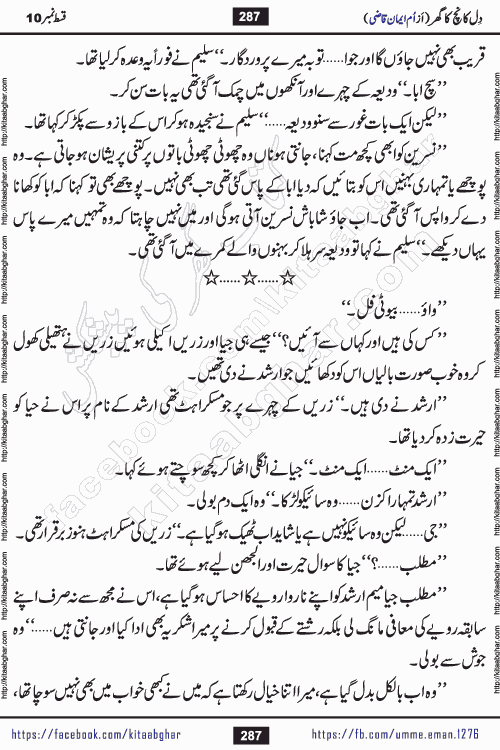 دِل کانچ کا گھر (از اُم ایمان قاضی) 287 قسط نمبر 10
قریب بھی نہیں جاؤں گا اور جوا......توبہ میرے پروردگار۔‘‘ سلیم نے فوراً یہ وعدہ کر لیا تھا۔
’’سچ ابا۔‘‘ ودیعہ کے چہرے اور آنکھوں میں چمک آ گئی تھی یہ بات سن کر۔
’’لیکن ایک بات غور سے سنو ودیعہ......‘‘ سلیم نے سنجیدہ ہو کر اس کے بازو سے پکڑ کر کہا تھا۔
’’نسرین کو ابھی کچھ مت کہنا، جانتی ہو ناں وہ چھوٹی چھوٹی باتوں پر کتنی پریشان ہو جاتی ہے۔ وہ
پوچھے یا تمہاری بہنیں اس کو بتائیں کہ دیا ابا کے پاس گئی تھی تب بھی نہیں۔ پوچھے بھی تو کہنا کہ ابا کو کھانا
دے کر واپس آ گئی تھی۔ اب جاؤ شاباش نسرین آتی ہو گی اور میں نہیں چاہتا کہ وہ تمہیں میرے پاس
یہاں دیکھے۔‘‘ سلیم نے کہا تو ودیعہ سر ہلا کر بہنوں والے کمرے میں آ گئی تھی۔
☆......☆......☆
’’واؤ......بیوٹی فل۔‘‘
’’کس کی ہیں اور کہاں سے آئیں؟‘‘ جیسے ہی جیا اور زریں اکیلی ہوئیں زریں نے ہتھیلی کھول
کر وہ خوب صورت بالیاں اس کو دکھائیں جو ارشد نے دی تھیں۔
’’ارشد نے دی ہیں۔‘‘ زریں کے چہرے پر جو مسکراہٹ تھی ارشد کے نام پر اس نے جیا کو
حیرت زدہ کر دیا تھا۔
’’ایک منٹ......ایک منٹ۔‘‘ جیا نے انگلی اٹھا کر کچھ سوچتے ہوئے کہا۔
’’ارشد تمہارا کزن......وہ سائیکو لڑکا۔‘‘ وہ ایک دم بولی۔
’’جی......لیکن وہ سائیکو نہیں ہے یا شاید اب ٹھیک ہو گیا ہے۔‘‘ زریں کی مسکراہٹ ہنوز برقرار تھی۔
’’مطلب......؟‘‘ جیا کا سوال حیرت اور الجھن لیے ہوئے تھا۔
’’مطلب جیا میم ارشد کو اپنے ناروا رویے کا احساس ہو گیا ہے، اس نے مجھ سے نہ صرف اپنے
سابقہ رویے کی معافی مانگ لی بلکہ رشتے کے قبول کرنے پر میرا شکریہ بھی ادا کیا اور جانتی ہیں......‘‘ وہ
جوش سے بولی۔
’’وہ اب بالکل بدل گیا ہے، میرا اتنا خیال رکھتا ہے کہ میں نے کبھی خواب میں بھی نہیں سوچا تھا،
https://facebook.com/kitaabghar 287 https://fb.com/umme.eman.1276
http://kitaabghar.com
کتاب گھر کی پیشکش
facebook.com/kitaabghar
kitaabghar.com